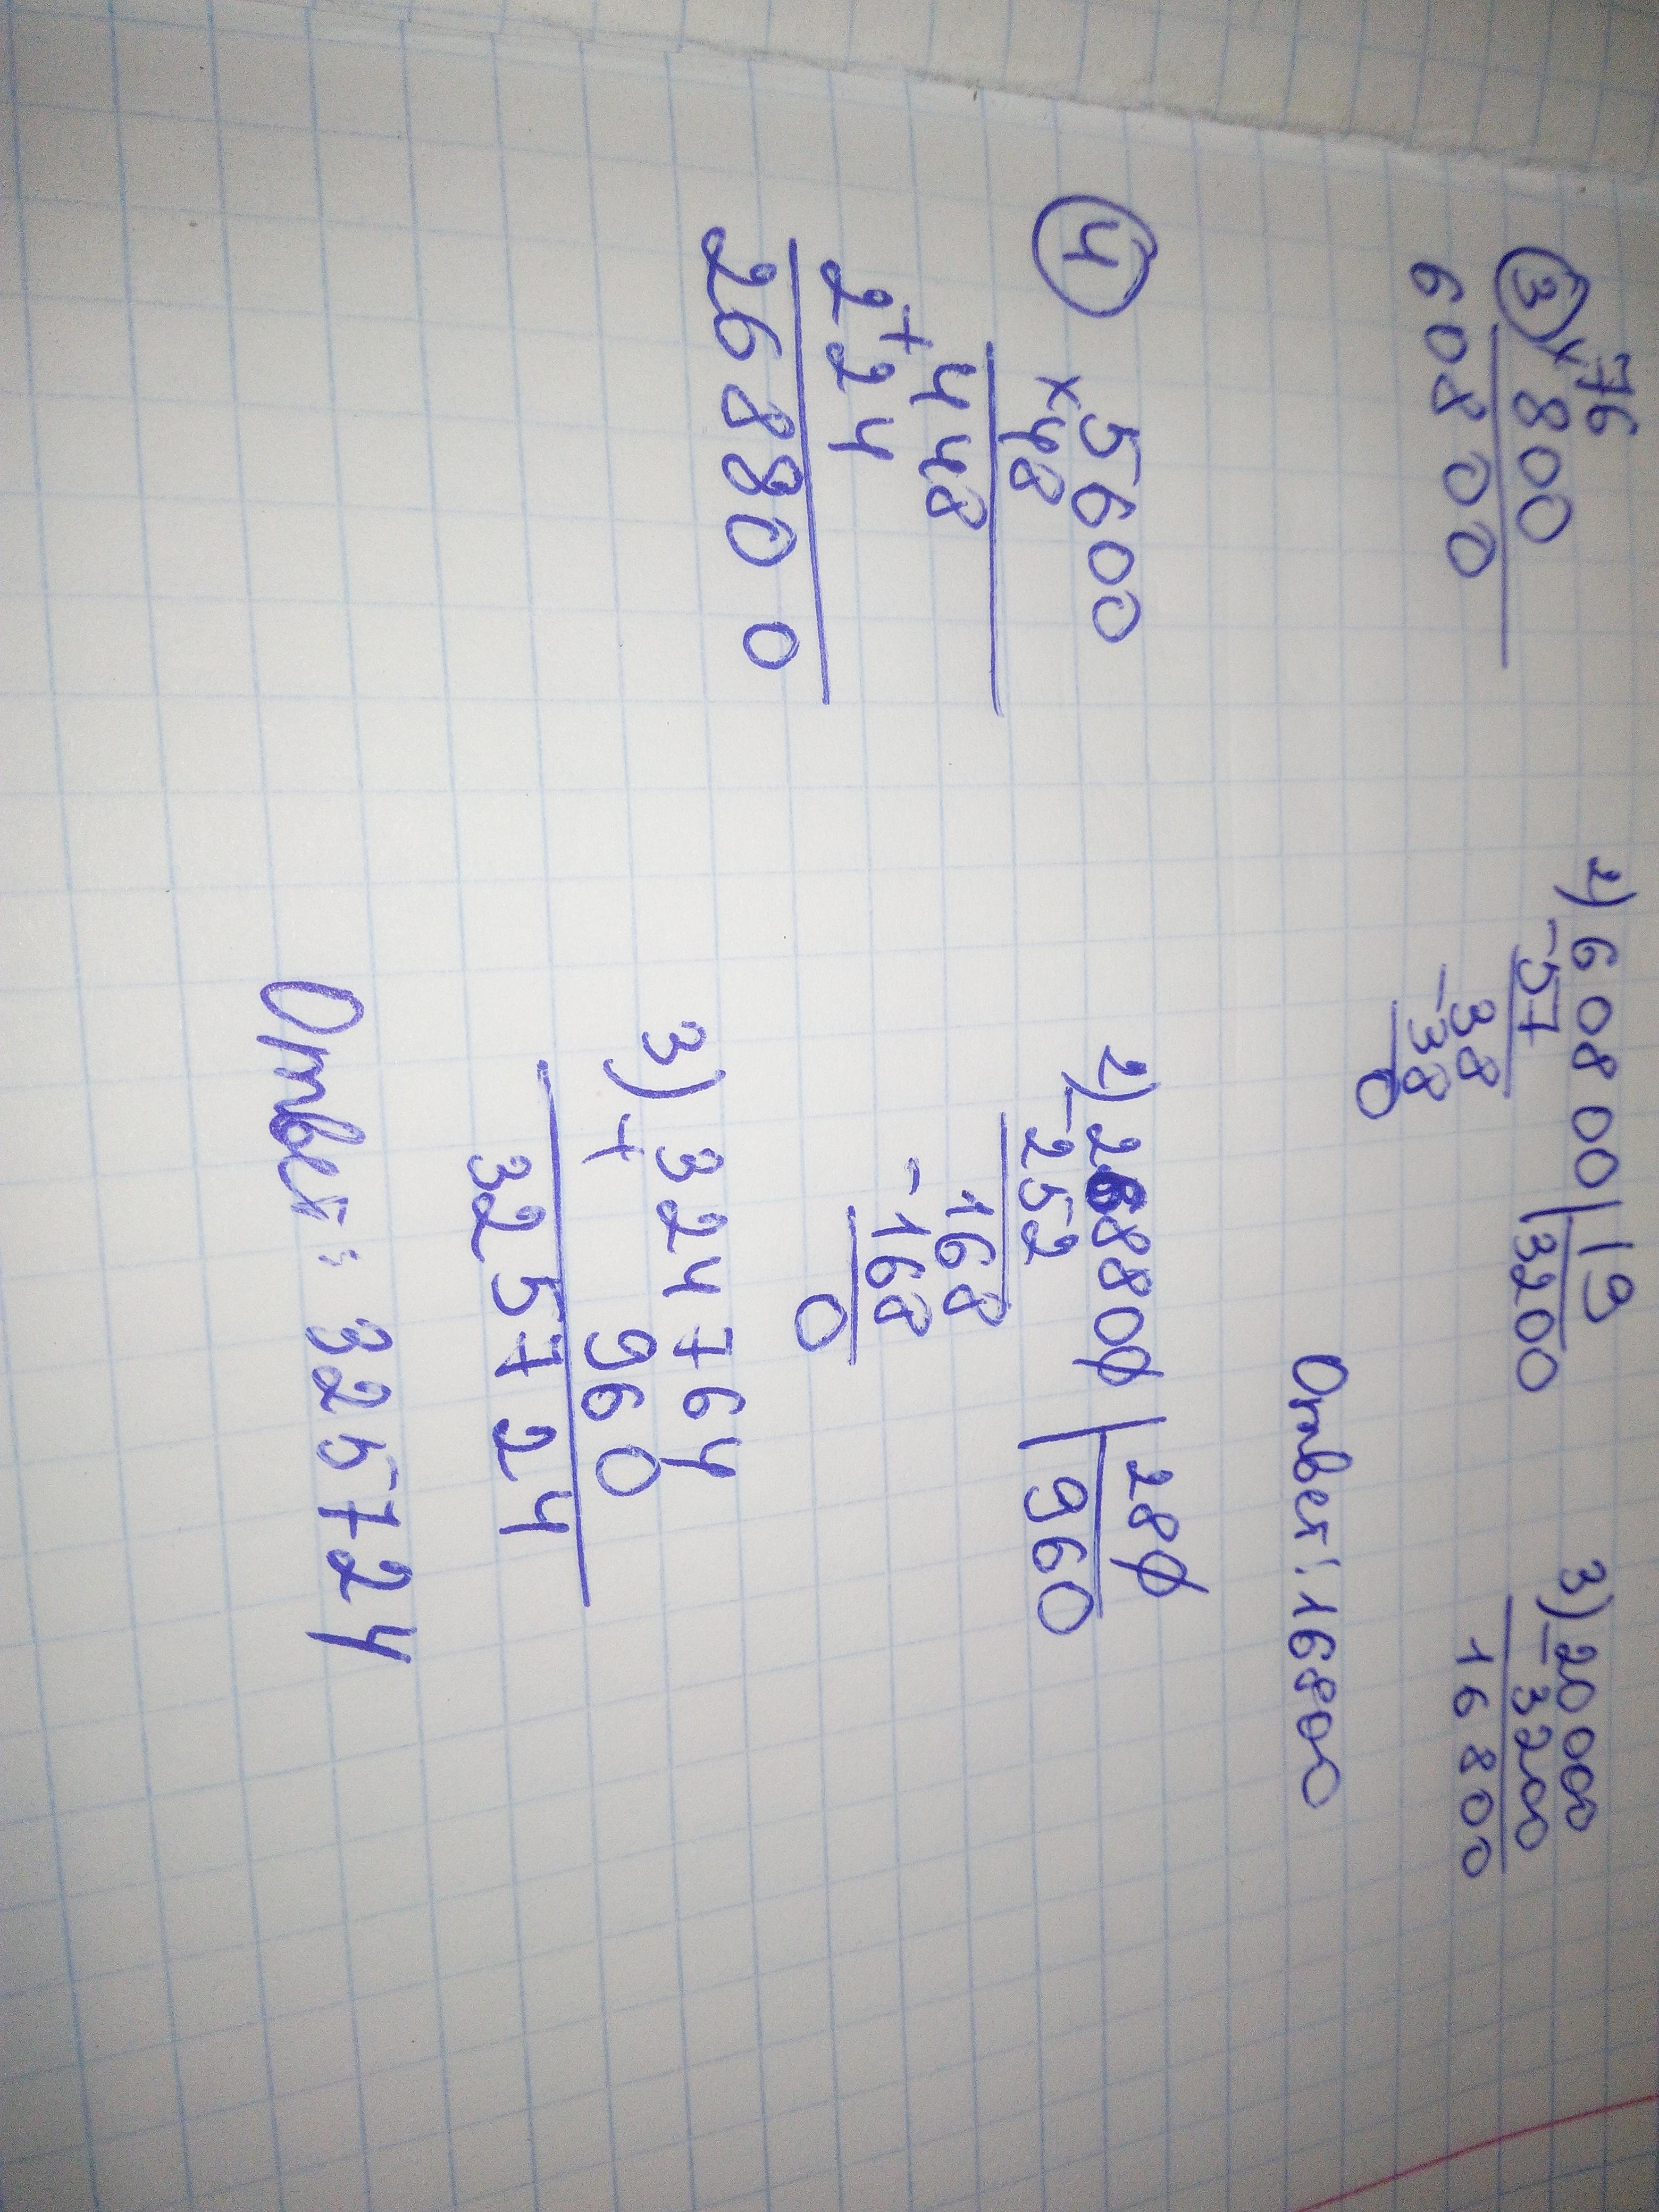 ③ × 76
800
60800
2) 60800 | 19
- 57 | 3200
38
- 38
0
3) 20000
- 3200
16800
Ответ: 16800
④ 5600
× 48
448
+ 224
268800
2) 268800 | 280
- 252 | 960
168
- 168
0
3) 324764
+ 960
325724
Ответ: 325724